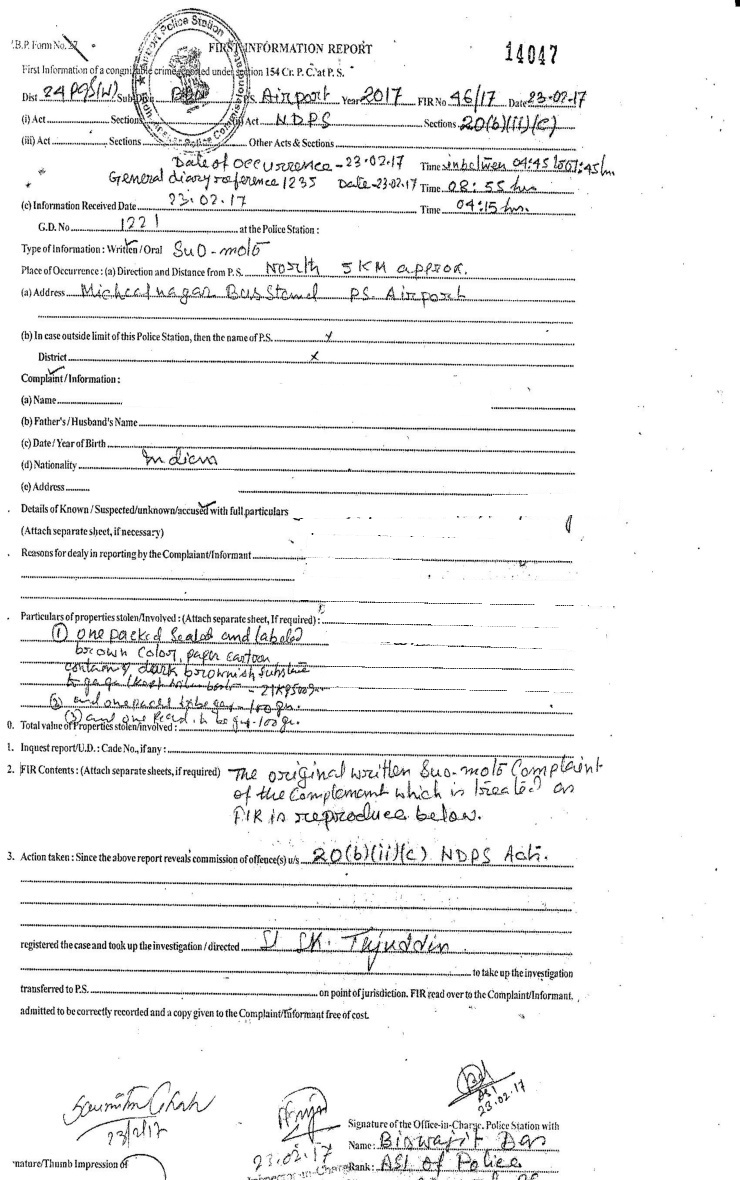 .B.P. Form No. 27
FIRST INFORMATION REPORT
14047
First Information of a congnizable crime reported under section 154 Cr. P. C. at P. S.
Dist 24 PGS(N) Sub-Divn P.S. Airport Year 2017 FIR No 46/17 Date 23-02-17
(i) Act Section (ii) Act NDPS Sections 20(b)(ii)(c)
(iii) Act Sections Other Acts & Sections
Date of occurrence - 23.02.17 Time inbetween 04:45 to 07:45 hrs
General diary reference 1235 Date - 23.02.17 Time 08:55 hrs
(c) Information Received Date 23.02.17 Time 04:15 hrs.
G.D. No 1221 at the Police Station :
Type of Information : Written / Oral Suo-moto
Place of Occurrence : (a) Direction and Distance from P.S. North 5 KM approx.
(a) Address Michealnagar Bus Stand PS. Airport
(b) In case outside limit of this Police Station, then the name of P.S. x
District x
Complaint / Information :
(a) Name
(b) Father's / Husband's Name
(c) Date / Year of Birth
(d) Nationality Indian
(e) Address
Details of Known / Suspected/unknown/accused with full particulars
(Attach separate sheet, if necessary)
Reasons for dealy in reporting by the Complaiant/Informant
Particulars of properties stolen/Involved : (Attach separate sheet, If required) :
(1) one packed sealed and labeled
brown color, paper cartoon
containing dark brownish substance
to ganja - 21K 950 gr
(2) and one packet to be ganja - 100 gr.
(3) and one to be ganja - 100 gr.
0. Total value of Properties stolen/involved :
1. Inquest report/U.D. : Cade No., if any :
2. FIR Contents : (Attach separate sheets, if required) The original written Suo-moto Complaint
of the Complainant which is treated as
FIR is reproduce below.
3. Action taken : Since the above report reveals commission of offence(s) u/s 20(b)(ii)(c) NDPS Act.
registered the case and took up the investigation / directed SI SK. Tajuddin
to take up the investigation
transferred to P.S. on point of jurisdiction. FIR read over to the Complaint/Informant,
admitted to be correctly recorded and a copy given to the Complaint/Informant free of cost.
ASI
23.02.17
23/2/17
Signature of the Office-in-Charge, Police Station with
23.02.17
Name: Biswajit Das
nature/Thumb Impression of
Inspector-in-Charge
Rank: ASI of Police